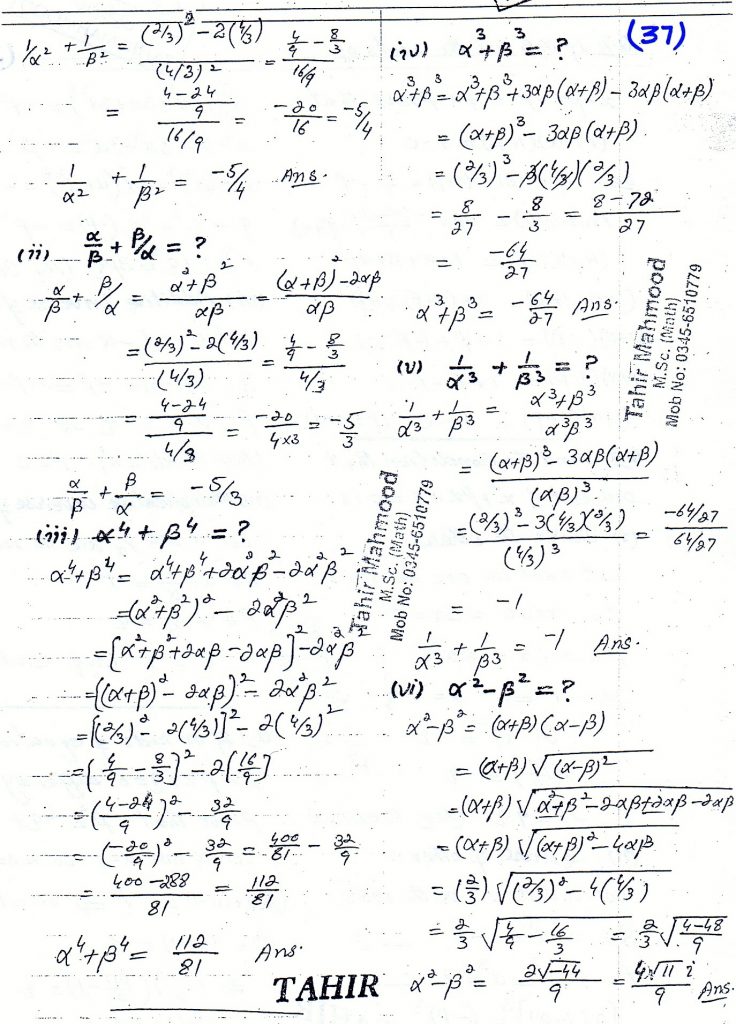 (37)
1/α² + 1/β² = ((2/3)² - 2(4/3))/(4/3)² = (4/9 - 8/3)/(16/9)
= ((4-24)/9)/(16/9) = -20/16 = -5/4
1/α² + 1/β² = -5/4 Ans.
(ii) α/β + β/α = ?
α/β + β/α = (α²+β²)/αβ = ((α+β)²-2αβ)/αβ
= ((2/3)² - 2(4/3))/(4/3) = (4/9 - 8/3)/(4/3)
= ((4-24)/9)/(4/3) = -20/(4×3) = -5/3
α/β + β/α = -5/3
(iii) α⁴ + β⁴ = ?
α⁴+β⁴ = α⁴+β⁴+2α²β²-2α²β²
=(α²+β²)² - 2α²β²
=[α²+β²+2αβ-2αβ]²-2α²β²
=[(α+β)²-2αβ]²-2α²β²
=[(2/3)² - 2(4/3)]² - 2(4/3)²
=[4/9 - 8/3]² - 2[16/9]
=((4-24)/9)² - 32/9
=(-20/9)² - 32/9 = 400/81 - 32/9
= (400-288)/81 = 112/81
α⁴+β⁴ = 112/81 Ans.
(iv) α³+β³ = ?
α³+β³ = α³+β³+3αβ(α+β) - 3αβ(α+β)
= (α+β)³ - 3αβ(α+β)
= (2/3)³ - 3(4/3)(2/3)
= 8/27 - 8/3 = (8-72)/27
= -64/27
α³+β³ = -64/27 Ans.
(v) 1/α³ + 1/β³ = ?
1/α³ + 1/β³ = (α³+β³)/α³β³
= ((α+β)³ - 3αβ(α+β))/(αβ)³
= ((2/3)³ - 3(4/3)(2/3))/(4/3)³ = (-64/27)/(64/27)
= -1
1/α³ + 1/β³ = -1 Ans.
(vi) α²-β² = ?
α²-β² = (α+β)(α-β)
= (α+β)√((α-β)²)
=(α+β)√(α²+β²-2αβ+2αβ-2αβ)
=(α+β)√((α+β)²-4αβ)
= (2/3)√((2/3)²-4(4/3))
= 2/3 √(4/9 - 16/3) = 2/3 √((4-48)/9)
α²-β² = 2√-44/9 = 4√11 i/9 Ans.
Tahir Mahmood
M.Sc. (Math)
Mob No: 0345-6510779
Tahir Mahmood
M.Sc. (Math)
Mob No: 0345-6510779
TAHIR